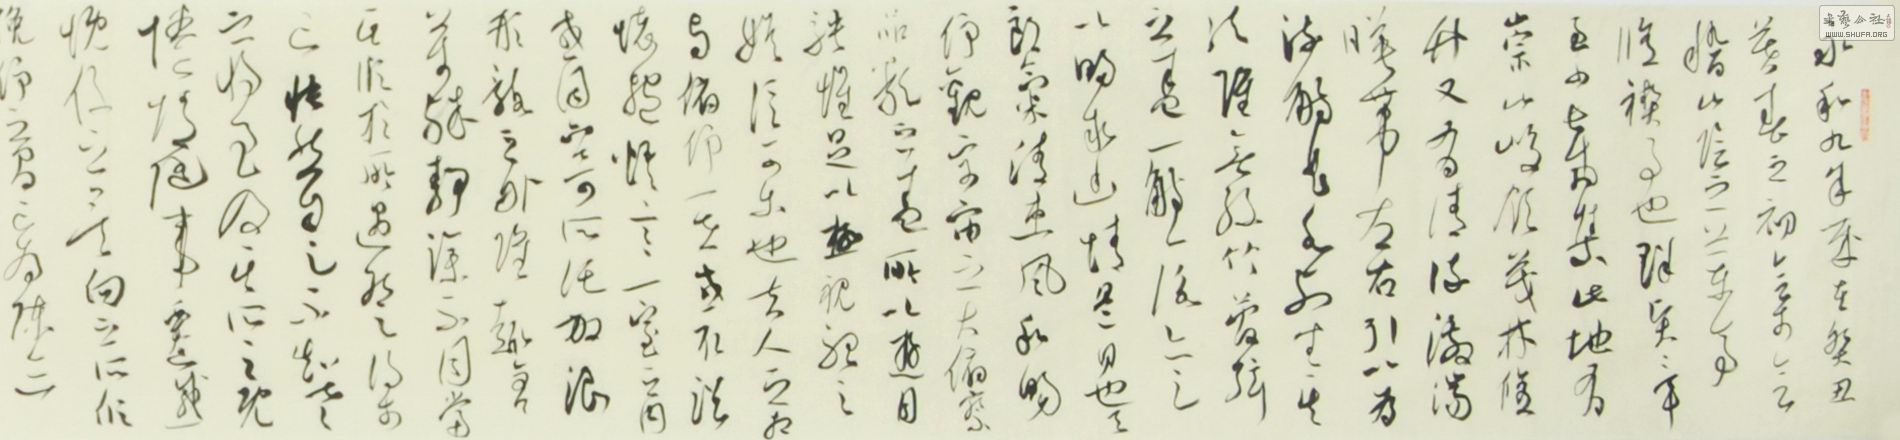 永和九年歲在癸丑
暮春之初會於會
稽山陰之蘭亭
脩禊事也群賢畢
至少長咸集此地有
崇山峻領茂林脩
竹又有清流激湍
映帶左右引以為
流觴曲水列坐其
次雖無絲竹管弦
之盛一觴一詠亦足
以暢敘幽情是日也天
朗氣清惠風和暢
仰觀宇宙之大俯察
品類之盛所以遊目
騁懷足以極視聽之
娛信可樂也夫人之相
與俯仰一世或取諸
懷抱悟言一室之內
或因寄所託放浪
形骸之外雖趣舍
萬殊靜躁不同當
其欣於所遇暫得於
己快然自足不知老
之將至及其所之既
倦情隨事遷感
慨係之矣向之所欣
俛仰之間已為陳迹
书艺公社
WWW.SHUFA.ORG